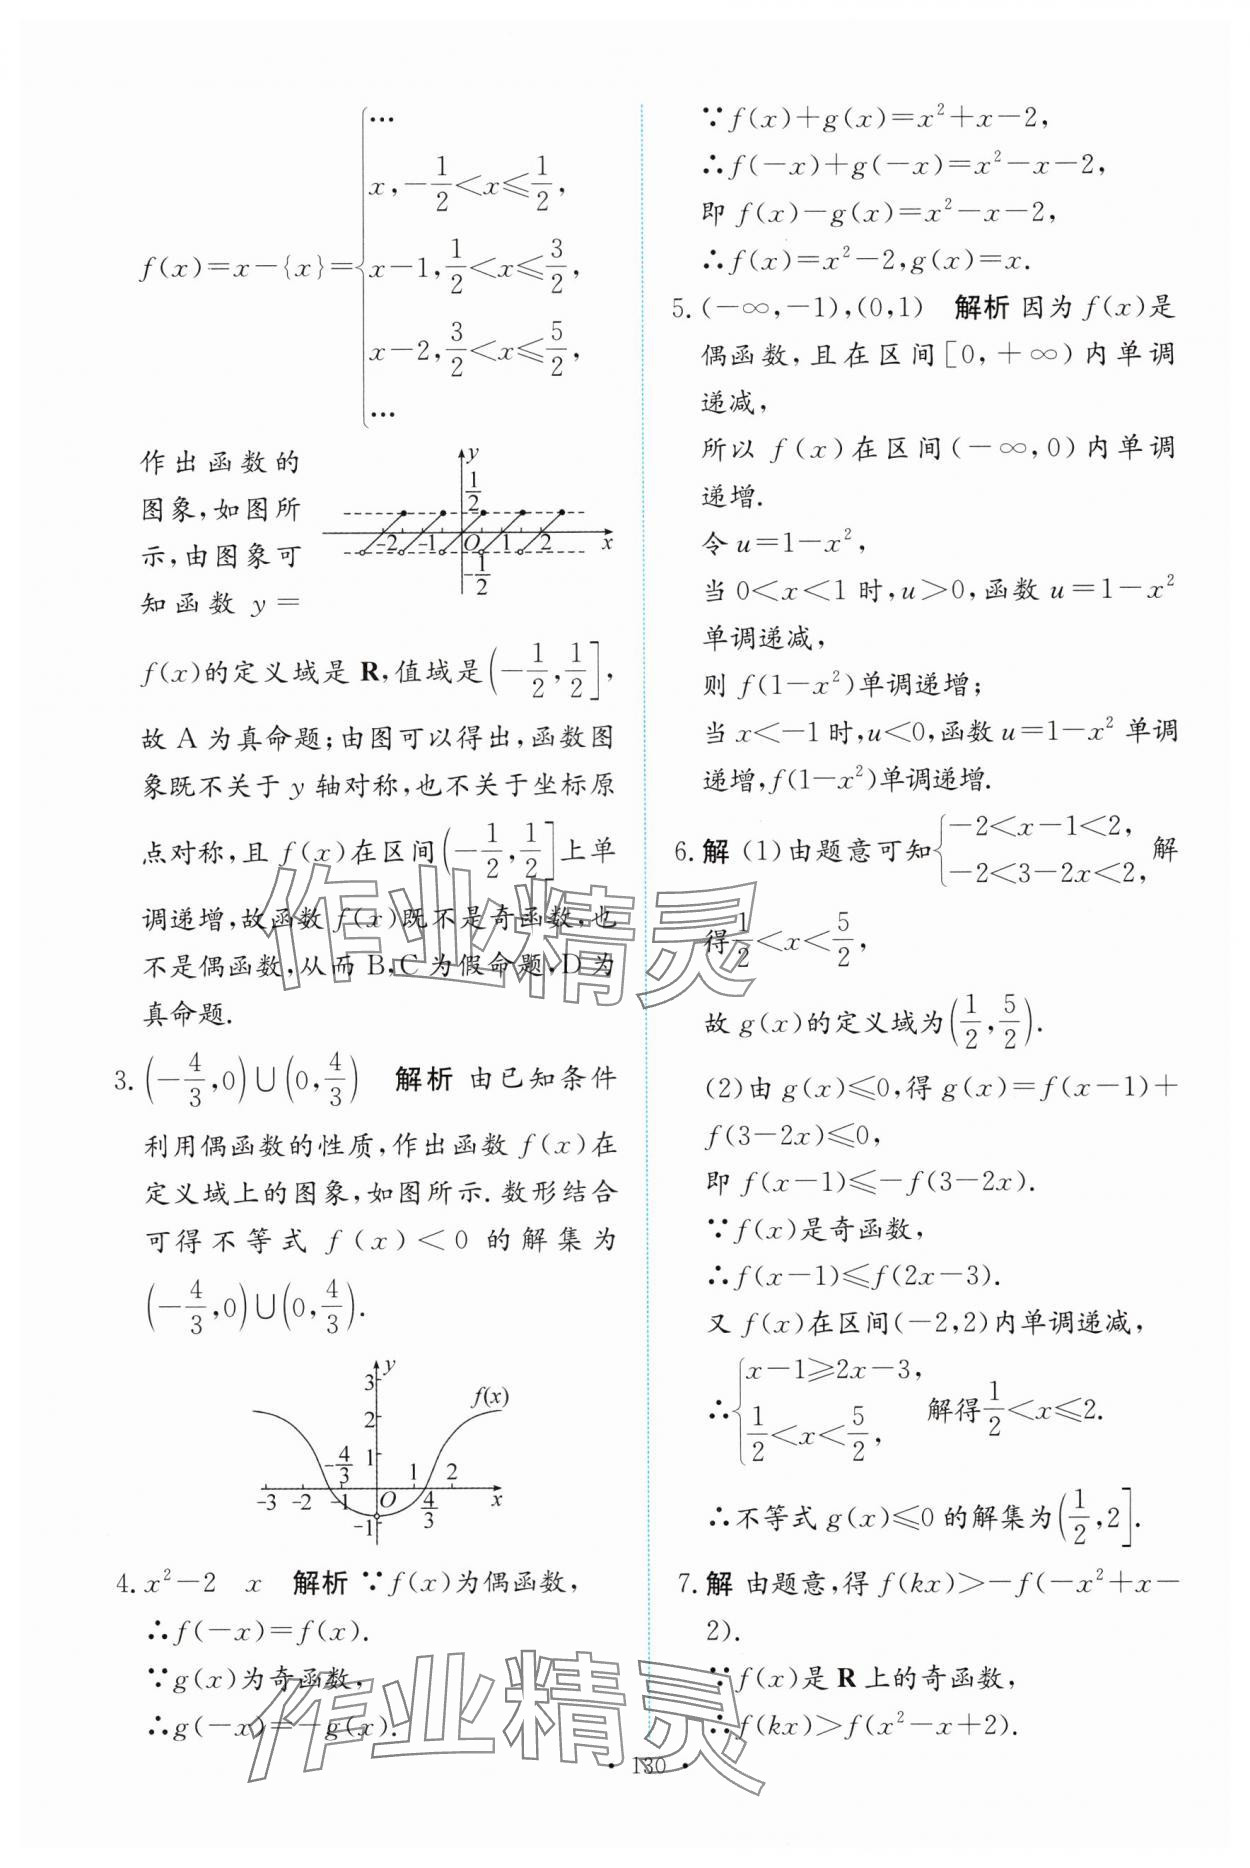 f(x)=x-{x}={
…
x,-1/2<x≤1/2,
x-1,1/2<x≤3/2,
x-2,3/2<x≤5/2,
…
作出函数的
图象,如图所
示,由图象可
知函数 y=
y
1/2
-2 -1 O 1 2 x
-1/2
f(x)的定义域是 R,值域是(-1/2,1/2],
故 A 为真命题;由图可以得出,函数图
象既不关于 y 轴对称,也不关于坐标原
点对称,且 f(x)在区间(-1/2,1/2]上单
调递增,故函数 f(x)既不是奇函数,也
不是偶函数,从而 B,C 为假命题,D 为
真命题.
3. (-4/3,0)∪(0,4/3) 解析 由已知条件
利用偶函数的性质,作出函数 f(x)在
定义域上的图象,如图所示.数形结合
可得不等式 f(x)<0 的解集为
(-4/3,0)∪(0,4/3).
y
3
f(x)
2
-4/3 1 1 2
-3 -2 -1 O 4/3 x
-1
4. x²-2 x 解析 ∵f(x)为偶函数,
∴f(-x)=f(x).
∵g(x)为奇函数,
∴g(-x)=-g(x).
∵f(x)+g(x)=x²+x-2,
∴f(-x)+g(-x)=x²-x-2,
即 f(x)-g(x)=x²-x-2,
∴f(x)=x²-2,g(x)=x.
5. (-∞,-1),(0,1) 解析 因为 f(x)是
偶函数,且在区间[0,+∞)内单调
递减,
所以 f(x)在区间(-∞,0)内单调
递增.
令 u=1-x²,
当 0<x<1 时,u>0,函数 u=1-x²
单调递减,
则 f(1-x²)单调递增;
当 x<-1 时,u<0,函数 u=1-x² 单调
递增,f(1-x²)单调递增.
6. 解 (1)由题意可知{-2<x-1<2, -2<3-2x<2, 解
得1/2<x<5/2,
故 g(x)的定义域为(1/2,5/2).
(2)由 g(x)≤0,得 g(x)=f(x-1)+
f(3-2x)≤0,
即 f(x-1)≤-f(3-2x).
∵f(x)是奇函数,
∴f(x-1)≤f(2x-3).
又 f(x)在区间(-2,2)内单调递减,
∴{x-1≥2x-3, 1/2<x<5/2, 解得1/2<x≤2.
∴不等式 g(x)≤0 的解集为(1/2,2].
7. 解 由题意,得 f(kx)>-f(-x²+x-
2).
∵f(x)是 R 上的奇函数,
∴f(kx)>f(x²-x+2).
• 130 •
作业精灵
作业精灵